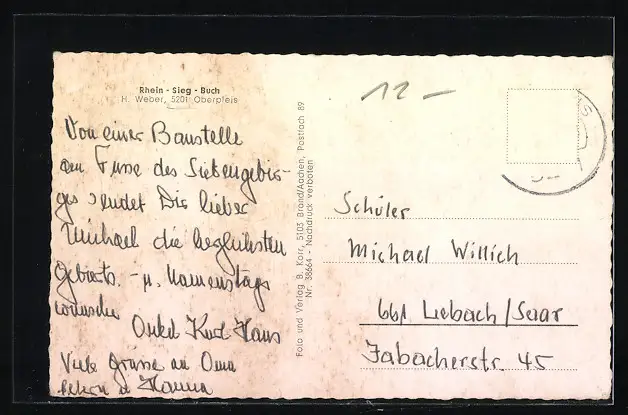 Rhein - Sieg - Buch
H. Weber, 5201 Oberpleis
Von einer Baustelle
am Fusse des Siebengebir-
ges sendet Dir lieber
Michael die herzlichsten
Geburts - u. Namenstags
wünsche
Onkel Kurt Hans
Viele Grüsse an Oma
Eltern u Hanna
Foto und Verlag B. Korr, 5103 Brand/Aachen, Postfach 89
Nr. 38664 - Nachdruck verboten
12 -
Schüler
Michael Willich
661 Lebach/Saar
Jabacherstr. 45